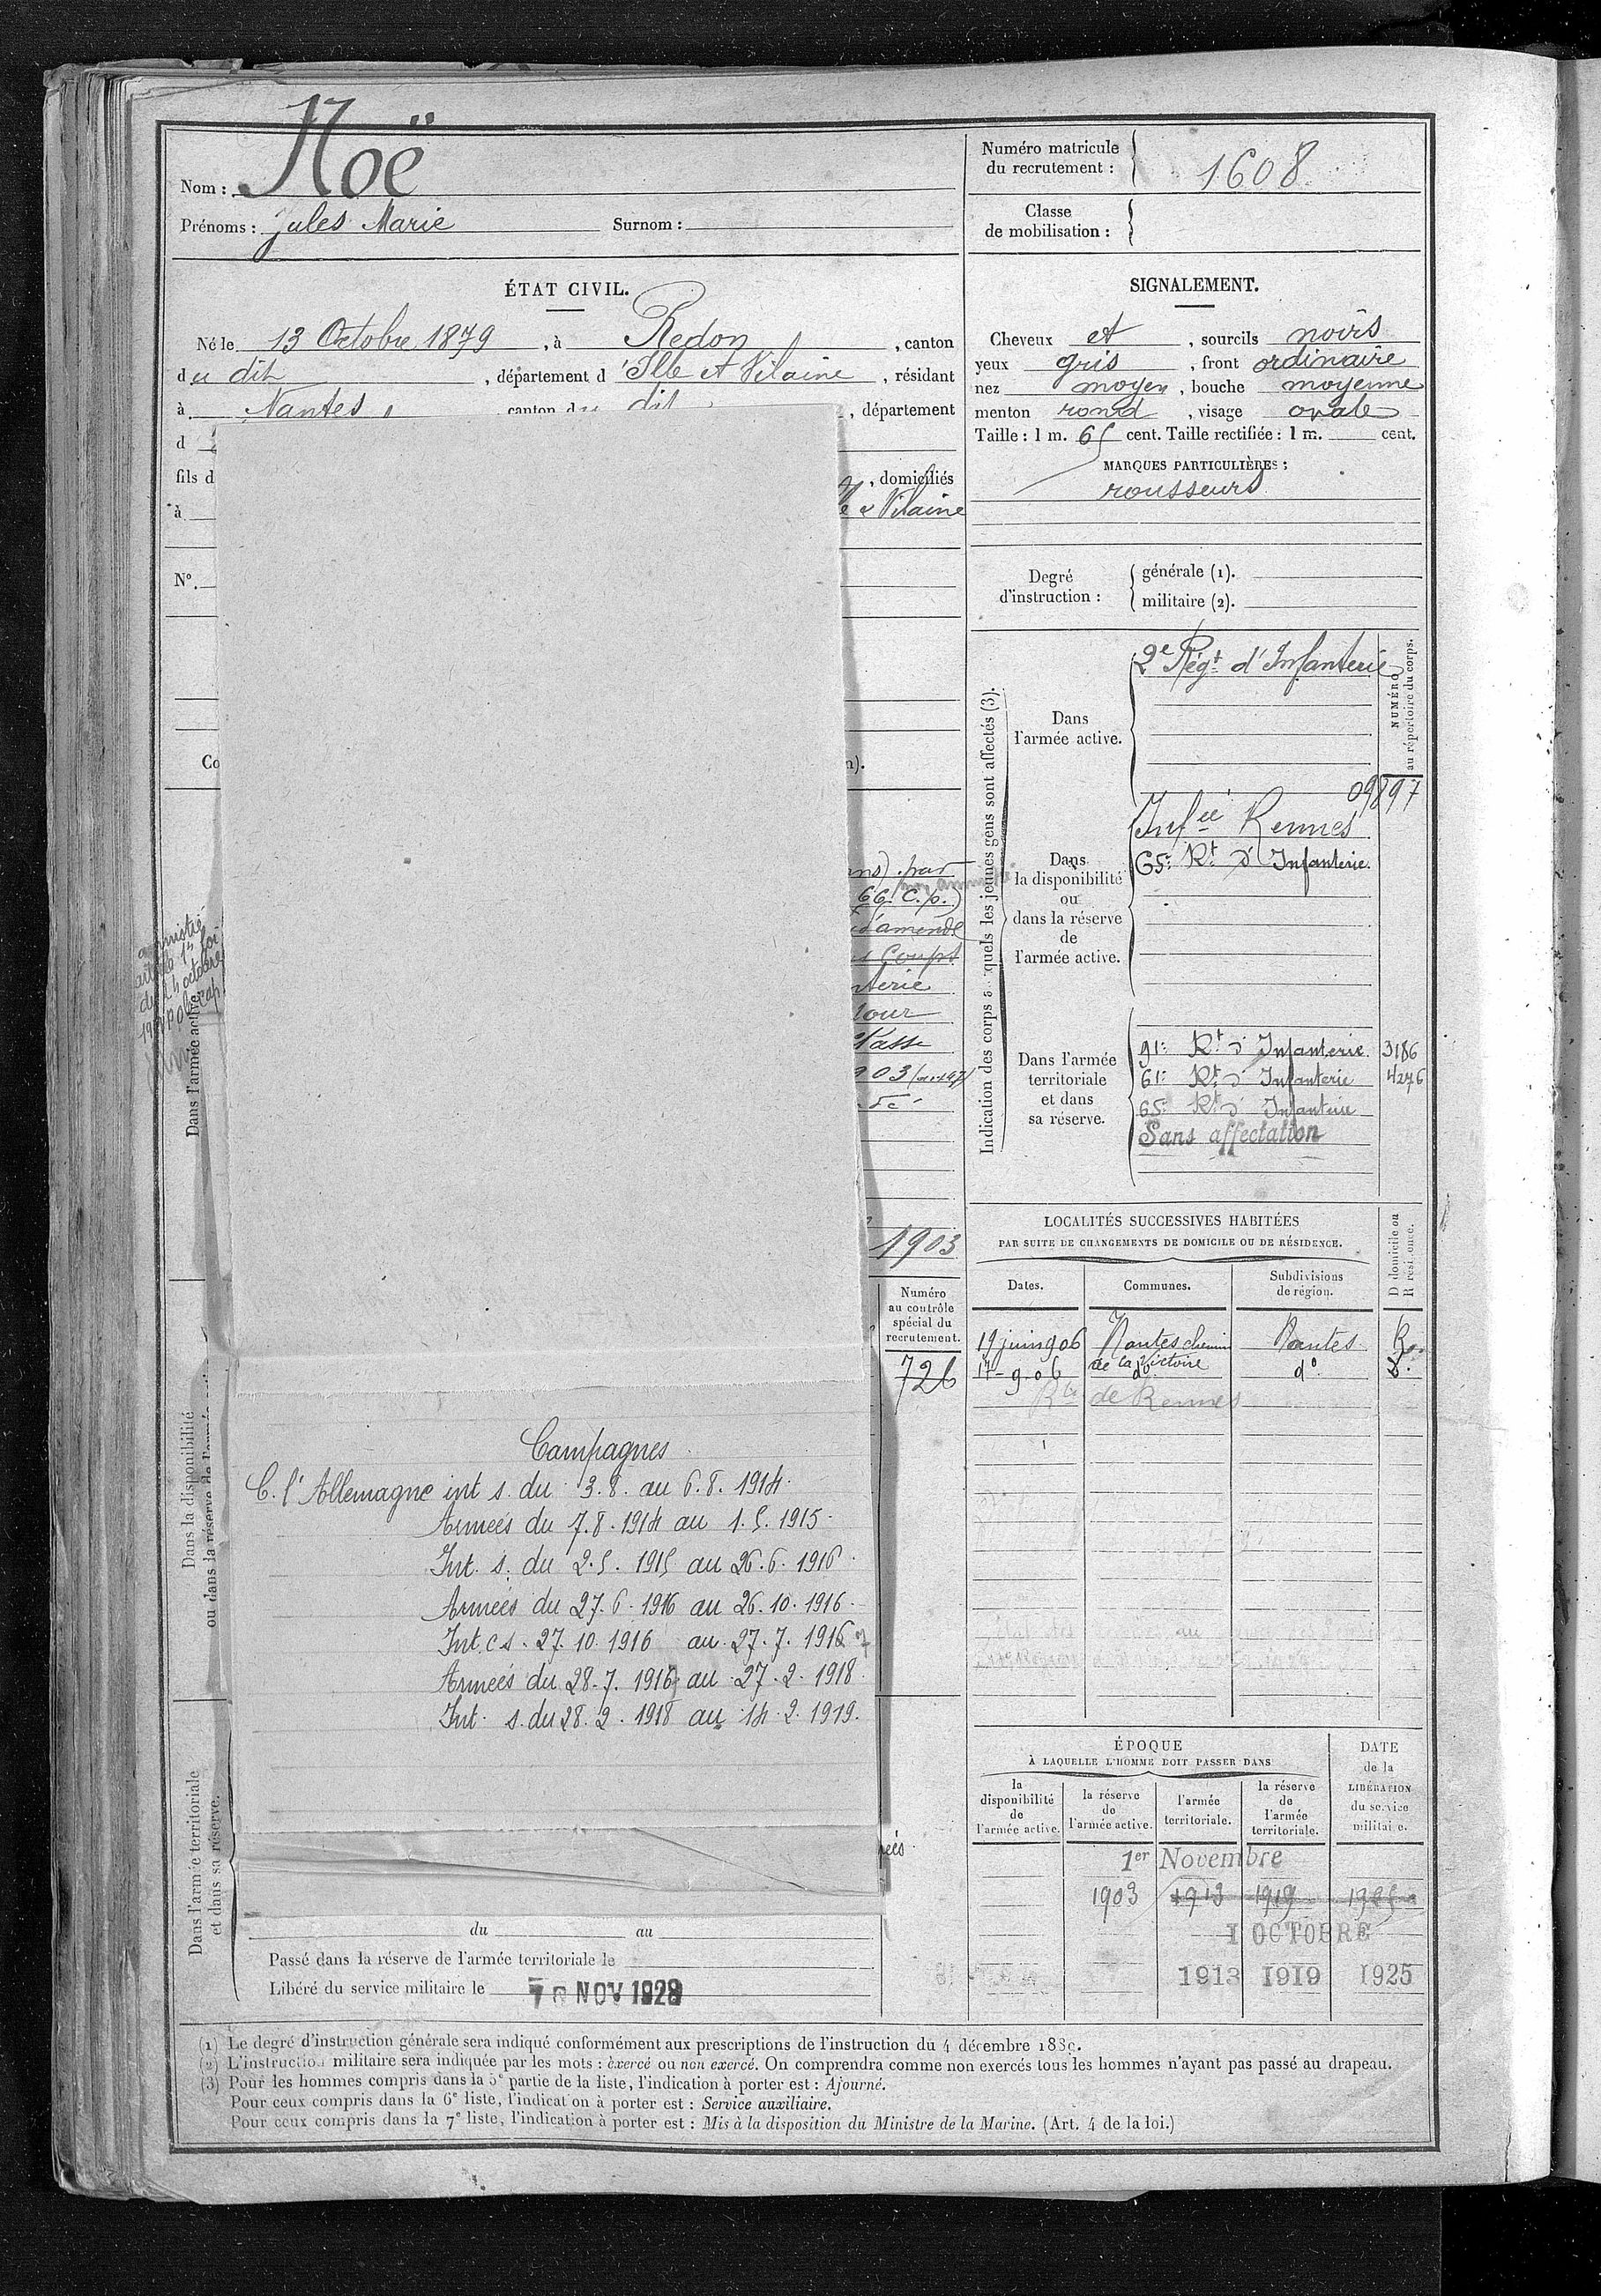 Nom : Noë
Prénoms : Jules Marie Surnom :
ÉTAT CIVIL.
Né le 13 Octobre 1879, à Redon, canton
du dit, département d'Ille et Vilaine, résidant
à Nantes, canton du dit, département
d
fils d , domiciliés
à e & Vilaine
N°.
Co n).
ans) par
66. C.p.)
d'amende
Coups
terie
tour
Classe
903
1903
amnistié
article 1er loi
du 24 octobre
Dans l'armée active
Numéro
au contrôle
spécial du
recrutement.
726
Dans la disponibilité
ou dans la réserve de l'armée active
Campagnes
C. l'Allemagne int s. du 3.8. au 6.8. 1914.
Armées du 7.8.1914 au 1.5.1915.
Int. s. du 2.5.1915 au 26.6.1916.
Armées du 27.6.1916 au 26.10.1916.
Int. c s. 27.10.1916 au 27.7.1916 7
Armées du 28.7.1916 7 au 27.2.1918.
Int. s. du 28.2.1918 au 14.2.1919.
Dans l'armée territoriale
et dans sa réserve.
du au
Passé dans la réserve de l'armée territoriale le
Libéré du service militaire le NOV 1928
Numéro matricule
du recrutement : 1608
Classe
de mobilisation :
SIGNALEMENT.
Cheveux et, sourcils noirs
yeux gris, front ordinaire
nez moyen, bouche moyenne
menton rond, visage ovale
Taille : 1 m. 65 cent. Taille rectifiée : 1 m. cent.
MARQUES PARTICULIÈRES :
rousseurs
Degré
d'instruction :
générale (1).
militaire (2).
Indication des corps quels les jeunes gens sont affectés (3).
NUMÉRO
au répertoire du corps.
Dans
l'armée active.
2e Régt d'Infanterie
09897
Dans
la disponibilité
ou
dans la réserve
de
l'armée active.
Infie Rennes
65e Rt d'Infanterie.
Dans l'armée
territoriale
et dans
sa réserve.
91e Rt d'Infanterie. 3186
61e Rt d'Infanterie 4276
65e Rt d'Infanterie
Sans affectation
LOCALITÉS SUCCESSIVES HABITÉES
PAR SUITE DE CHANGEMENTS DE DOMICILE OU DE RÉSIDENCE.
D domicile ou
R résidence.
Dates. Communes. Subdivisions
de région.
19 juin 906 Nantes chemin Nantes R.
de la Victoire
17-9-06 do do D.
Rte de Rennes
ÉPOQUE
À LAQUELLE L'HOMME DOIT PASSER DANS
DATE
de la
LIBÉRATION
du service
militaire.
la
disponibilité
de
l'armée active.
la réserve
de
l'armée active.
l'armée
territoriale.
la réserve
de
l'armée
territoriale.
1er Novembre
1903 1913 1919
1 OCTOBRE
1913 1919 1925
(1) Le degré d'instruction générale sera indiqué conformément aux prescriptions de l'instruction du 4 décembre 1889.
(2) L'instruction militaire sera indiquée par les mots : exercé ou non exercé. On comprendra comme non exercés tous les hommes n'ayant pas passé au drapeau.
(3) Pour les hommes compris dans la 5e partie de la liste, l'indication à porter est : Ajourné.
Pour ceux compris dans la 6e liste, l'indication à porter est : Service auxiliaire.
Pour ceux compris dans la 7e liste, l'indication à porter est : Mis à la disposition du Ministre de la Marine. (Art. 4 de la loi.)